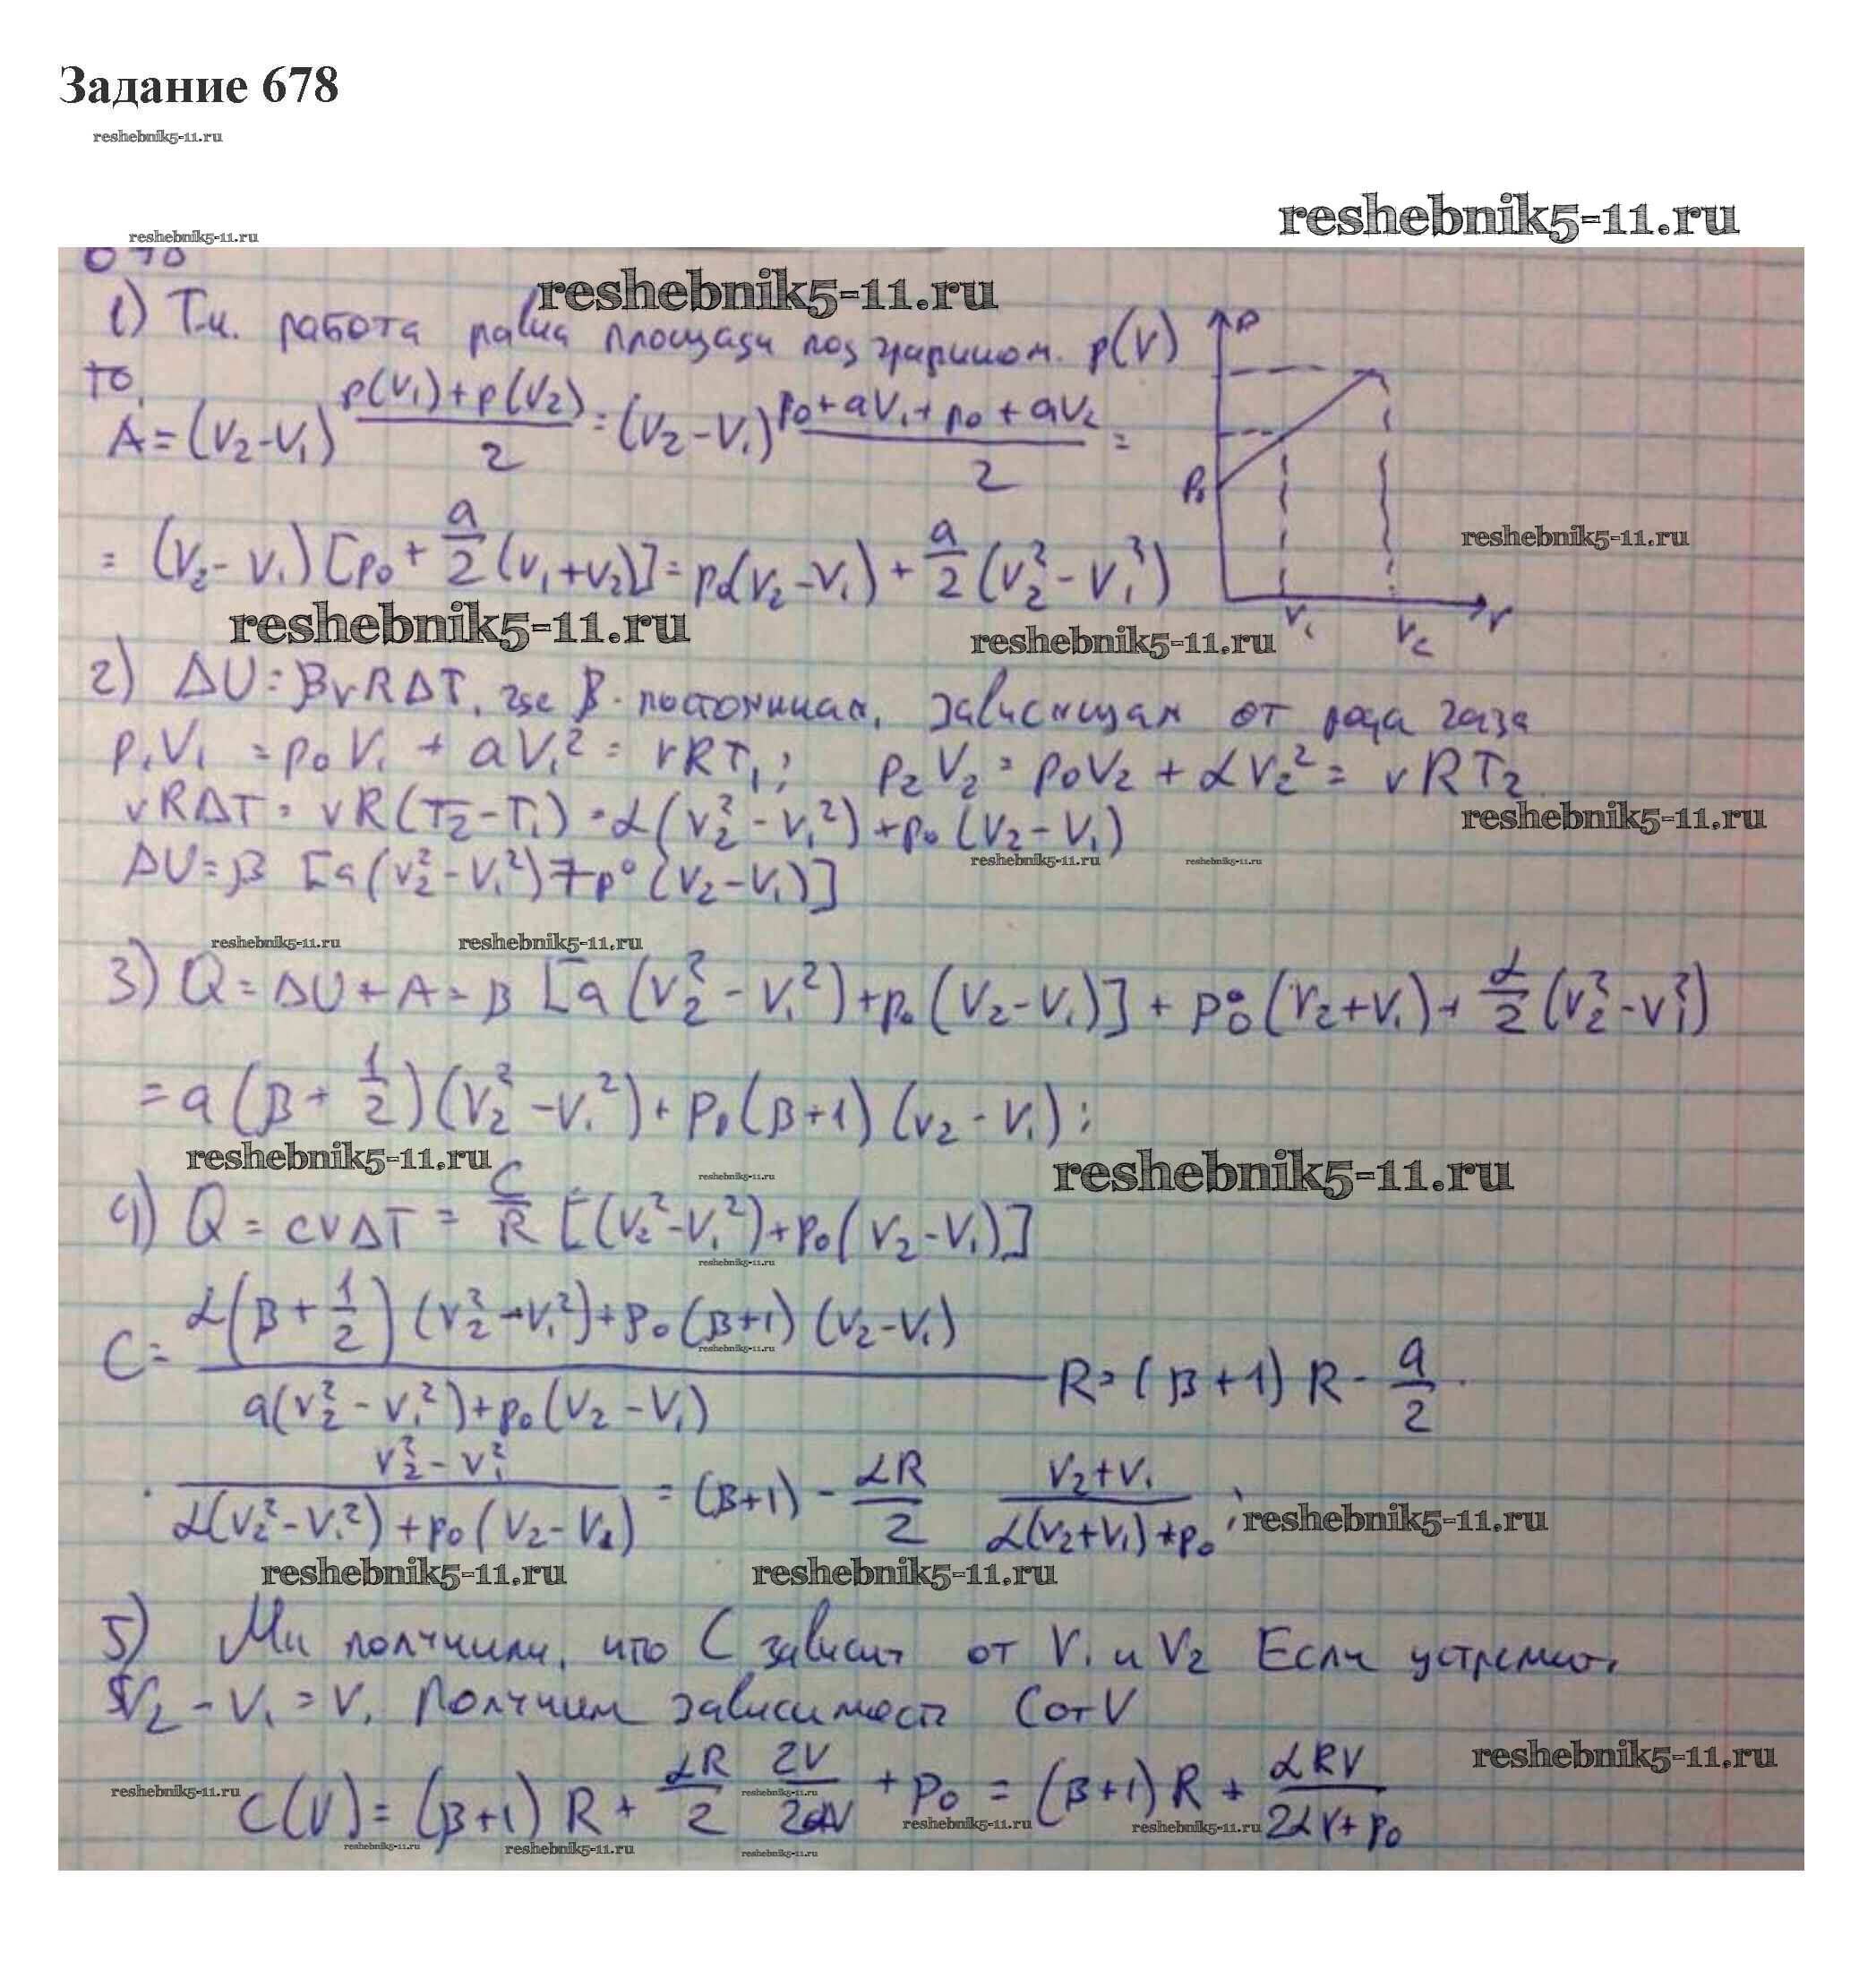 Задание 678
reshebnik5-11.ru
reshebnik5-11.ru
reshebnik5-11.ru
678
reshebnik5-11.ru
1) Т.к. работа равна площади под графиком p(V)
то,
A = (V₂-V₁) (p(V₁)+p(V₂))/2 = (V₂-V₁) (p₀+aV₁+p₀+aV₂)/2 =
= (V₂-V₁)[p₀+a/2(V₁+V₂)] = p₀(V₂-V₁) + a/2(V₂²-V₁²)
P
P₀
V₁
V₂
V
reshebnik5-11.ru
reshebnik5-11.ru
reshebnik5-11.ru
2) ΔU = βνRΔT, где β - постоянная, зависящая от рода газа
p₁V₁ = p₀V₁ + aV₁² = νRT₁; p₂V₂ = p₀V₂ + αV₂² = νRT₂
νRΔT = νR(T₂-T₁) = α(V₂²-V₁²)+p₀(V₂-V₁)
reshebnik5-11.ru
reshebnik5-11.ru
reshebnik5-11.ru
ΔU = β [a(V₂²-V₁²)+p₀(V₂-V₁)]
reshebnik5-11.ru
reshebnik5-11.ru
3) Q = ΔU + A = β [a(V₂²-V₁²)+p₀(V₂-V₁)] + p₀(V₂+V₁) + α/2(V₂²-V₁²)
= a(β+1/2)(V₂²-V₁²)+p₀(β+1)(V₂-V₁);
reshebnik5-11.ru
reshebnik5-11.ru
reshebnik5-11.ru
4) Q = cνΔT = C/R [(V₂²-V₁²)+p₀(V₂-V₁)]
reshebnik5-11.ru
C = (α(β+1/2)(V₂²-V₁²)+p₀(β+1)(V₂-V₁))/(a(V₂²-V₁²)+p₀(V₂-V₁)) R = (β+1)R - a/2 ·
reshebnik5-11.ru
· (V₂²-V₁²)/(α(V₂²-V₁²)+p₀(V₂-V₁)) = (β+1) - αR/2 (V₂+V₁)/(α(V₂+V₁)+p₀);
reshebnik5-11.ru
reshebnik5-11.ru
reshebnik5-11.ru
5) Мы получили, что C зависит от V₁ и V₂ Если устремить
V₂-V₁=V, Получим зависимость C от V
reshebnik5-11.ru
C(V) = (β+1)R + αR/2 2V/2αV + p₀ = (β+1)R + αRV/(2αV+p₀)
reshebnik5-11.ru
reshebnik5-11.ru
reshebnik5-11.ru
reshebnik5-11.ru
reshebnik5-11.ru
reshebnik5-11.ru
reshebnik5-11.ru